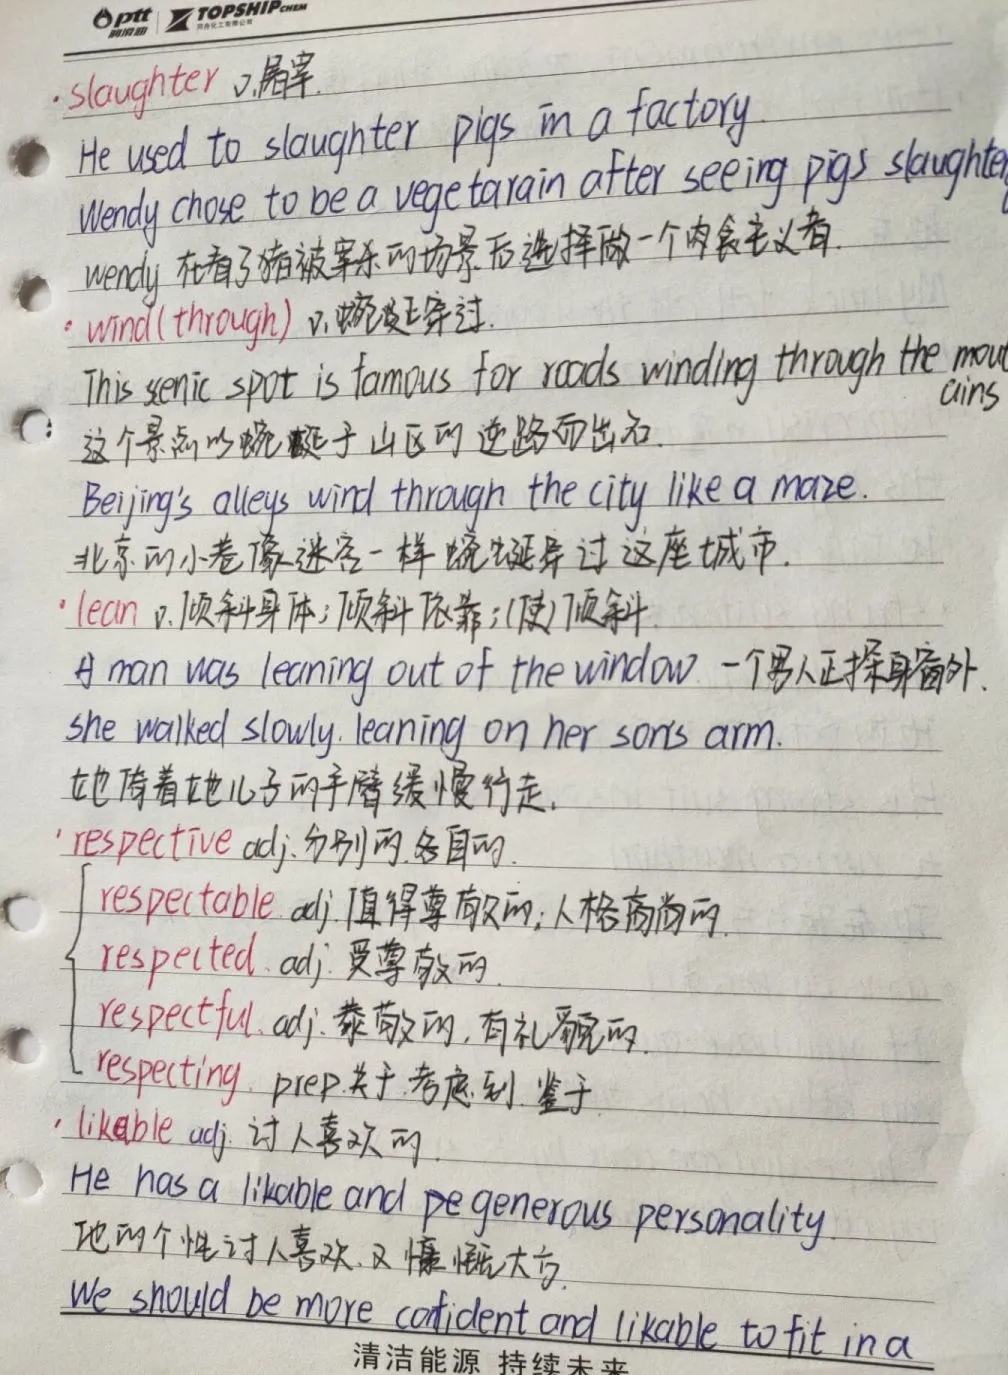 ptt 润滑油 TOPSHIP CHEM
· slaughter v.屠宰.
He used to slaughter pigs in a factory.
Wendy chose to be a vegetarain after seeing pigs slaughter
wendy 在看了猪被宰杀的场景后选择做一个肉食主义者.
· wind(through) v.蜿蜒穿过.
This scenic spot is famous for roads winding through the mout
ains
这个景点以蜿蜒于山区的道路而出名.
Beijing's alleys wind through the city like a maze.
北京的小巷像迷宫一样蜿蜒穿过这座城市.
· lean v.倾斜身体;倾斜依靠;(使)倾斜
A man was leaning out of the window 一个男人正探身窗外.
she walked slowly. leaning on her son's arm.
她倚着她儿子的手臂缓慢行走.
· respective adj.分别的.各自的.
respectable adj.值得尊敬的;人格高尚的.
respected. adj. 受尊敬的.
respectful. adj.恭敬的,有礼貌的.
respecting. prep.关于.考虑到.鉴于.
· likable adj. 讨人喜欢的.
He has a likable and pe generous personality.
他的个性讨人喜欢.又慷慨大方.
We should be more confident and likable to fit in a
清洁能源 持续未来